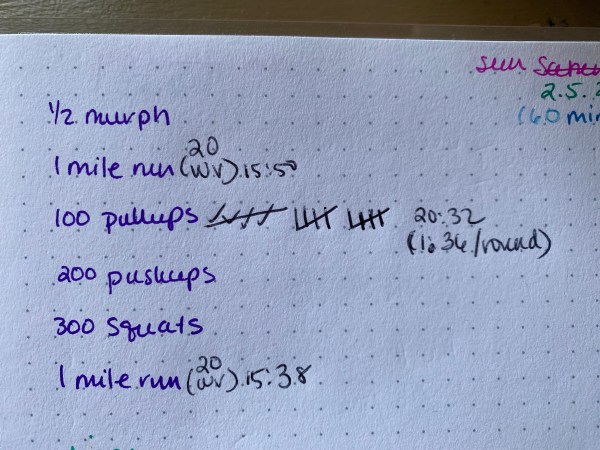 sun
2.5.
(60 min
1/2 murph
1 mile run (20 wv) 15:50
100 pullups 20:32
(1:36/round)
200 pushups
300 squats
1 mile run (20 wv) 15:38